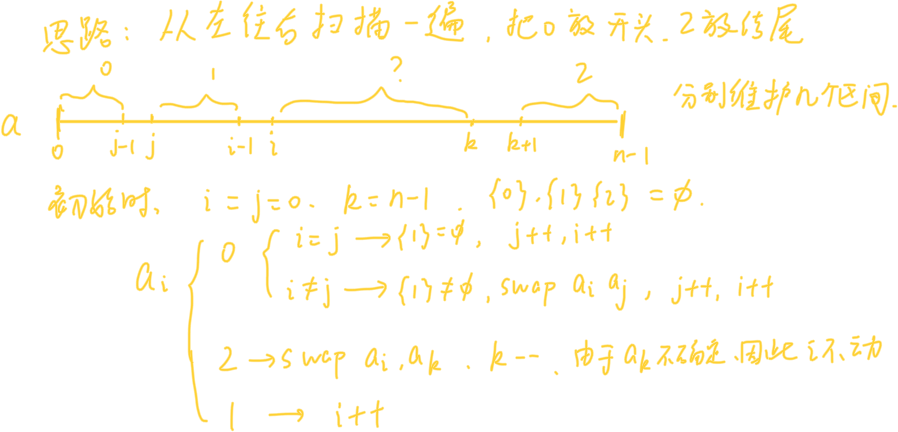 思路: 从左往右扫描一遍, 把0放开头, 2放结尾
0 1 ? 2 分别维护几个区间.
a
0 j-1 j i-1 i k k+1 n-1
初始时, i=j=0. k=n-1. {0}.{1}{2}=∅.
ai
0 i=j→{1}=∅, j++, i++
i≠j→{1}≠∅, swap ai aj, j++, i++
2→swap ai, ak. k--. 由于ak不确定, 因此i不动
1 → i++